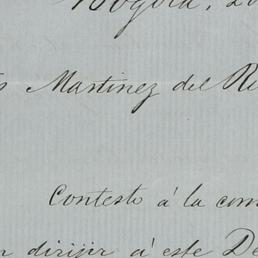 Bogotá, 20
Martinez del Ri
Contesto á la com
dirijir á este De